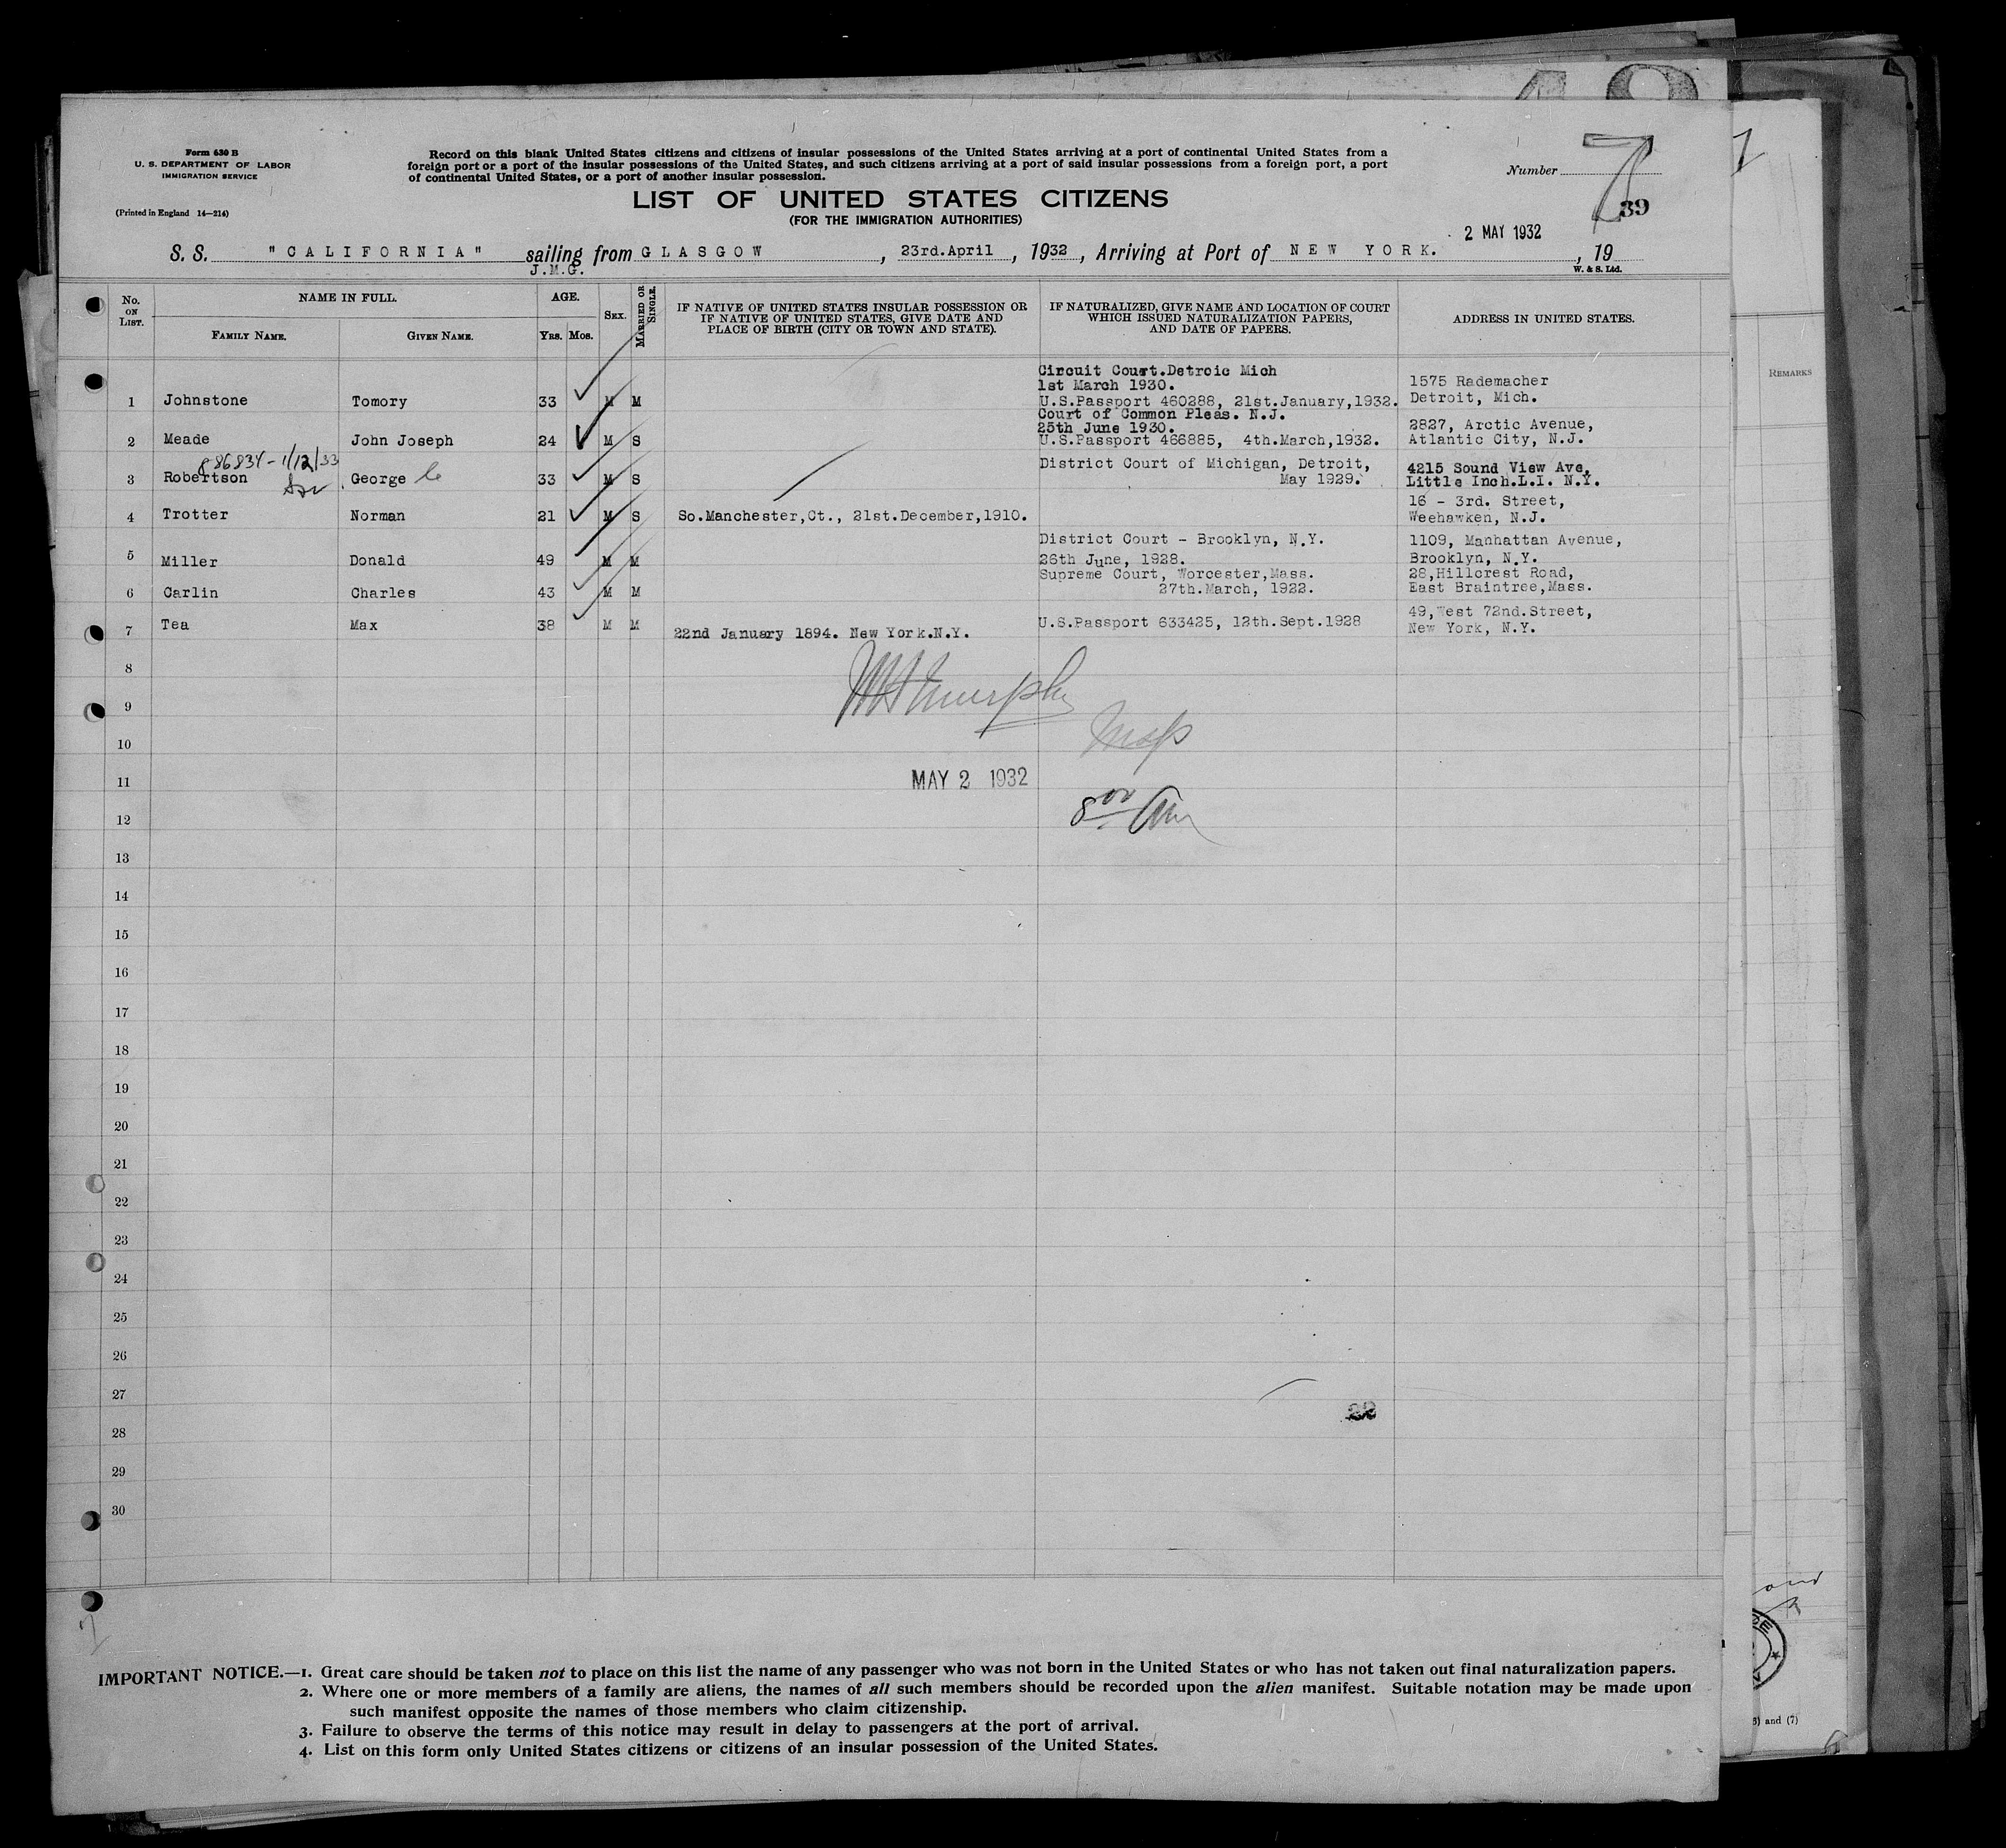 Form 630 B
U. S. DEPARTMENT OF LABOR
IMMIGRATION SERVICE
(Printed in England 14—214)
Record on this blank United States citizens and citizens of insular possessions of the United States arriving at a port of continental United States from a
foreign port or a port of the insular possessions of the United States, and such citizens arriving at a port of said insular possessions from a foreign port, a port
of continental United States, or a port of another insular possession.
LIST OF UNITED STATES CITIZENS
(FOR THE IMMIGRATION AUTHORITIES)
Number 7
39
2 MAY 1932
S. S. "CALIFORNIA" sailing from GLASGOW, 23rd.April, 1932, Arriving at Port of NEW YORK., 19
J.M.G.
W. & S. Ltd.
No. ON LIST.
NAME IN FULL.
FAMILY NAME.
GIVEN NAME.
AGE.
YRS. MOS.
SEX.
MARRIED OR SINGLE.
IF NATIVE OF UNITED STATES INSULAR POSSESSION OR
IF NATIVE OF UNITED STATES, GIVE DATE AND
PLACE OF BIRTH (CITY OR TOWN AND STATE).
IF NATURALIZED, GIVE NAME AND LOCATION OF COURT
WHICH ISSUED NATURALIZATION PAPERS,
AND DATE OF PAPERS.
ADDRESS IN UNITED STATES.
REMARKS
Circuit Court.Detroic Mich
1st March 1930.
1575 Rademacher
1 Johnstone Tomory 33 M M U.S.Passport 460288, 21st.January,1932. Detroit, Mich.
Court of Common Pleas. N.J.
25th June 1930.
2827, Arctic Avenue,
2 Meade John Joseph 24 M S U.S.Passport 466885, 4th.March,1932. Atlantic City, N.J.
886834 - 1/12/33
District Court of Michigan, Detroit,
4215 Sound View Ave,
3 Robertson George C 33 M S May 1929. Little Inch.L.I. N.Y.
16 - 3rd. Street,
4 Trotter Norman 21 M S So.Manchester,Ct., 21st.December,1910. Weehawken, N.J.
District Court - Brooklyn, N.Y.
1109, Manhattan Avenue,
5 Miller Donald 49 M M 26th June, 1928. Brooklyn, N.Y.
Supreme Court, Worcester,Mass.
28,Hillcrest Road,
6 Carlin Charles 43 M M 27th.March, 1922. East Braintree,Mass.
49,West 72nd.Street,
7 Tea Max 38 M M 22nd January 1894. New York.N.Y. U.S.Passport 633425, 12th.Sept.1928 New York, N.Y.
8
9
10
11
MAY 2 1932
12
13
14
15
16
17
18
19
20
21
22
23
24
25
26
27
28
29
30
IMPORTANT NOTICE.—1. Great care should be taken not to place on this list the name of any passenger who was not born in the United States or who has not taken out final naturalization papers.
2. Where one or more members of a family are aliens, the names of all such members should be recorded upon the alien manifest. Suitable notation may be made upon
such manifest opposite the names of those members who claim citizenship.
3. Failure to observe the terms of this notice may result in delay to passengers at the port of arrival.
4. List on this form only United States citizens or citizens of an insular possession of the United States.
and (7)